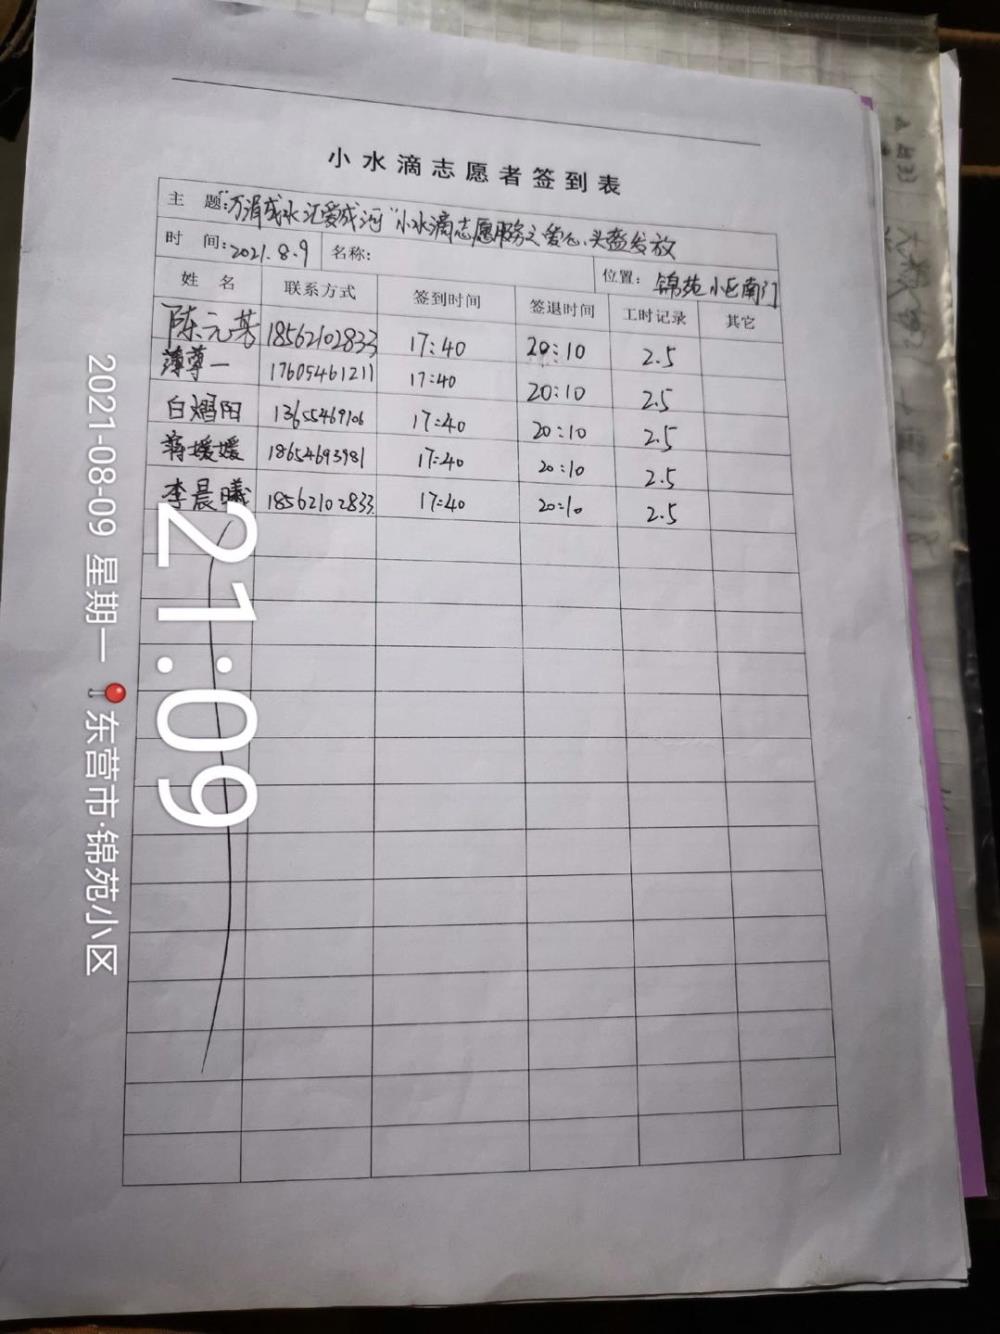 小水滴志愿者签到表
主 题:"万涓成水汇爱成河"小水滴志愿服务之爱心头盔发放
时 间:2021.8.9 名称: 位置: 锦苑小区南门
姓 名 联系方式 签到时间 签退时间 工时记录 其它
陈元芳 18562102833 17:40 20:10 2.5
薄尊一 17605461211 17:40 20:10 2.5
白熠阳 13655469106 17:40 20:10 2.5
蒋媛媛 18654693981 17:40 20:10 2.5
李晨曦 18562102833 17:40 20:10 2.5
21:09
2021-08-09 星期一 东营市·锦苑小区